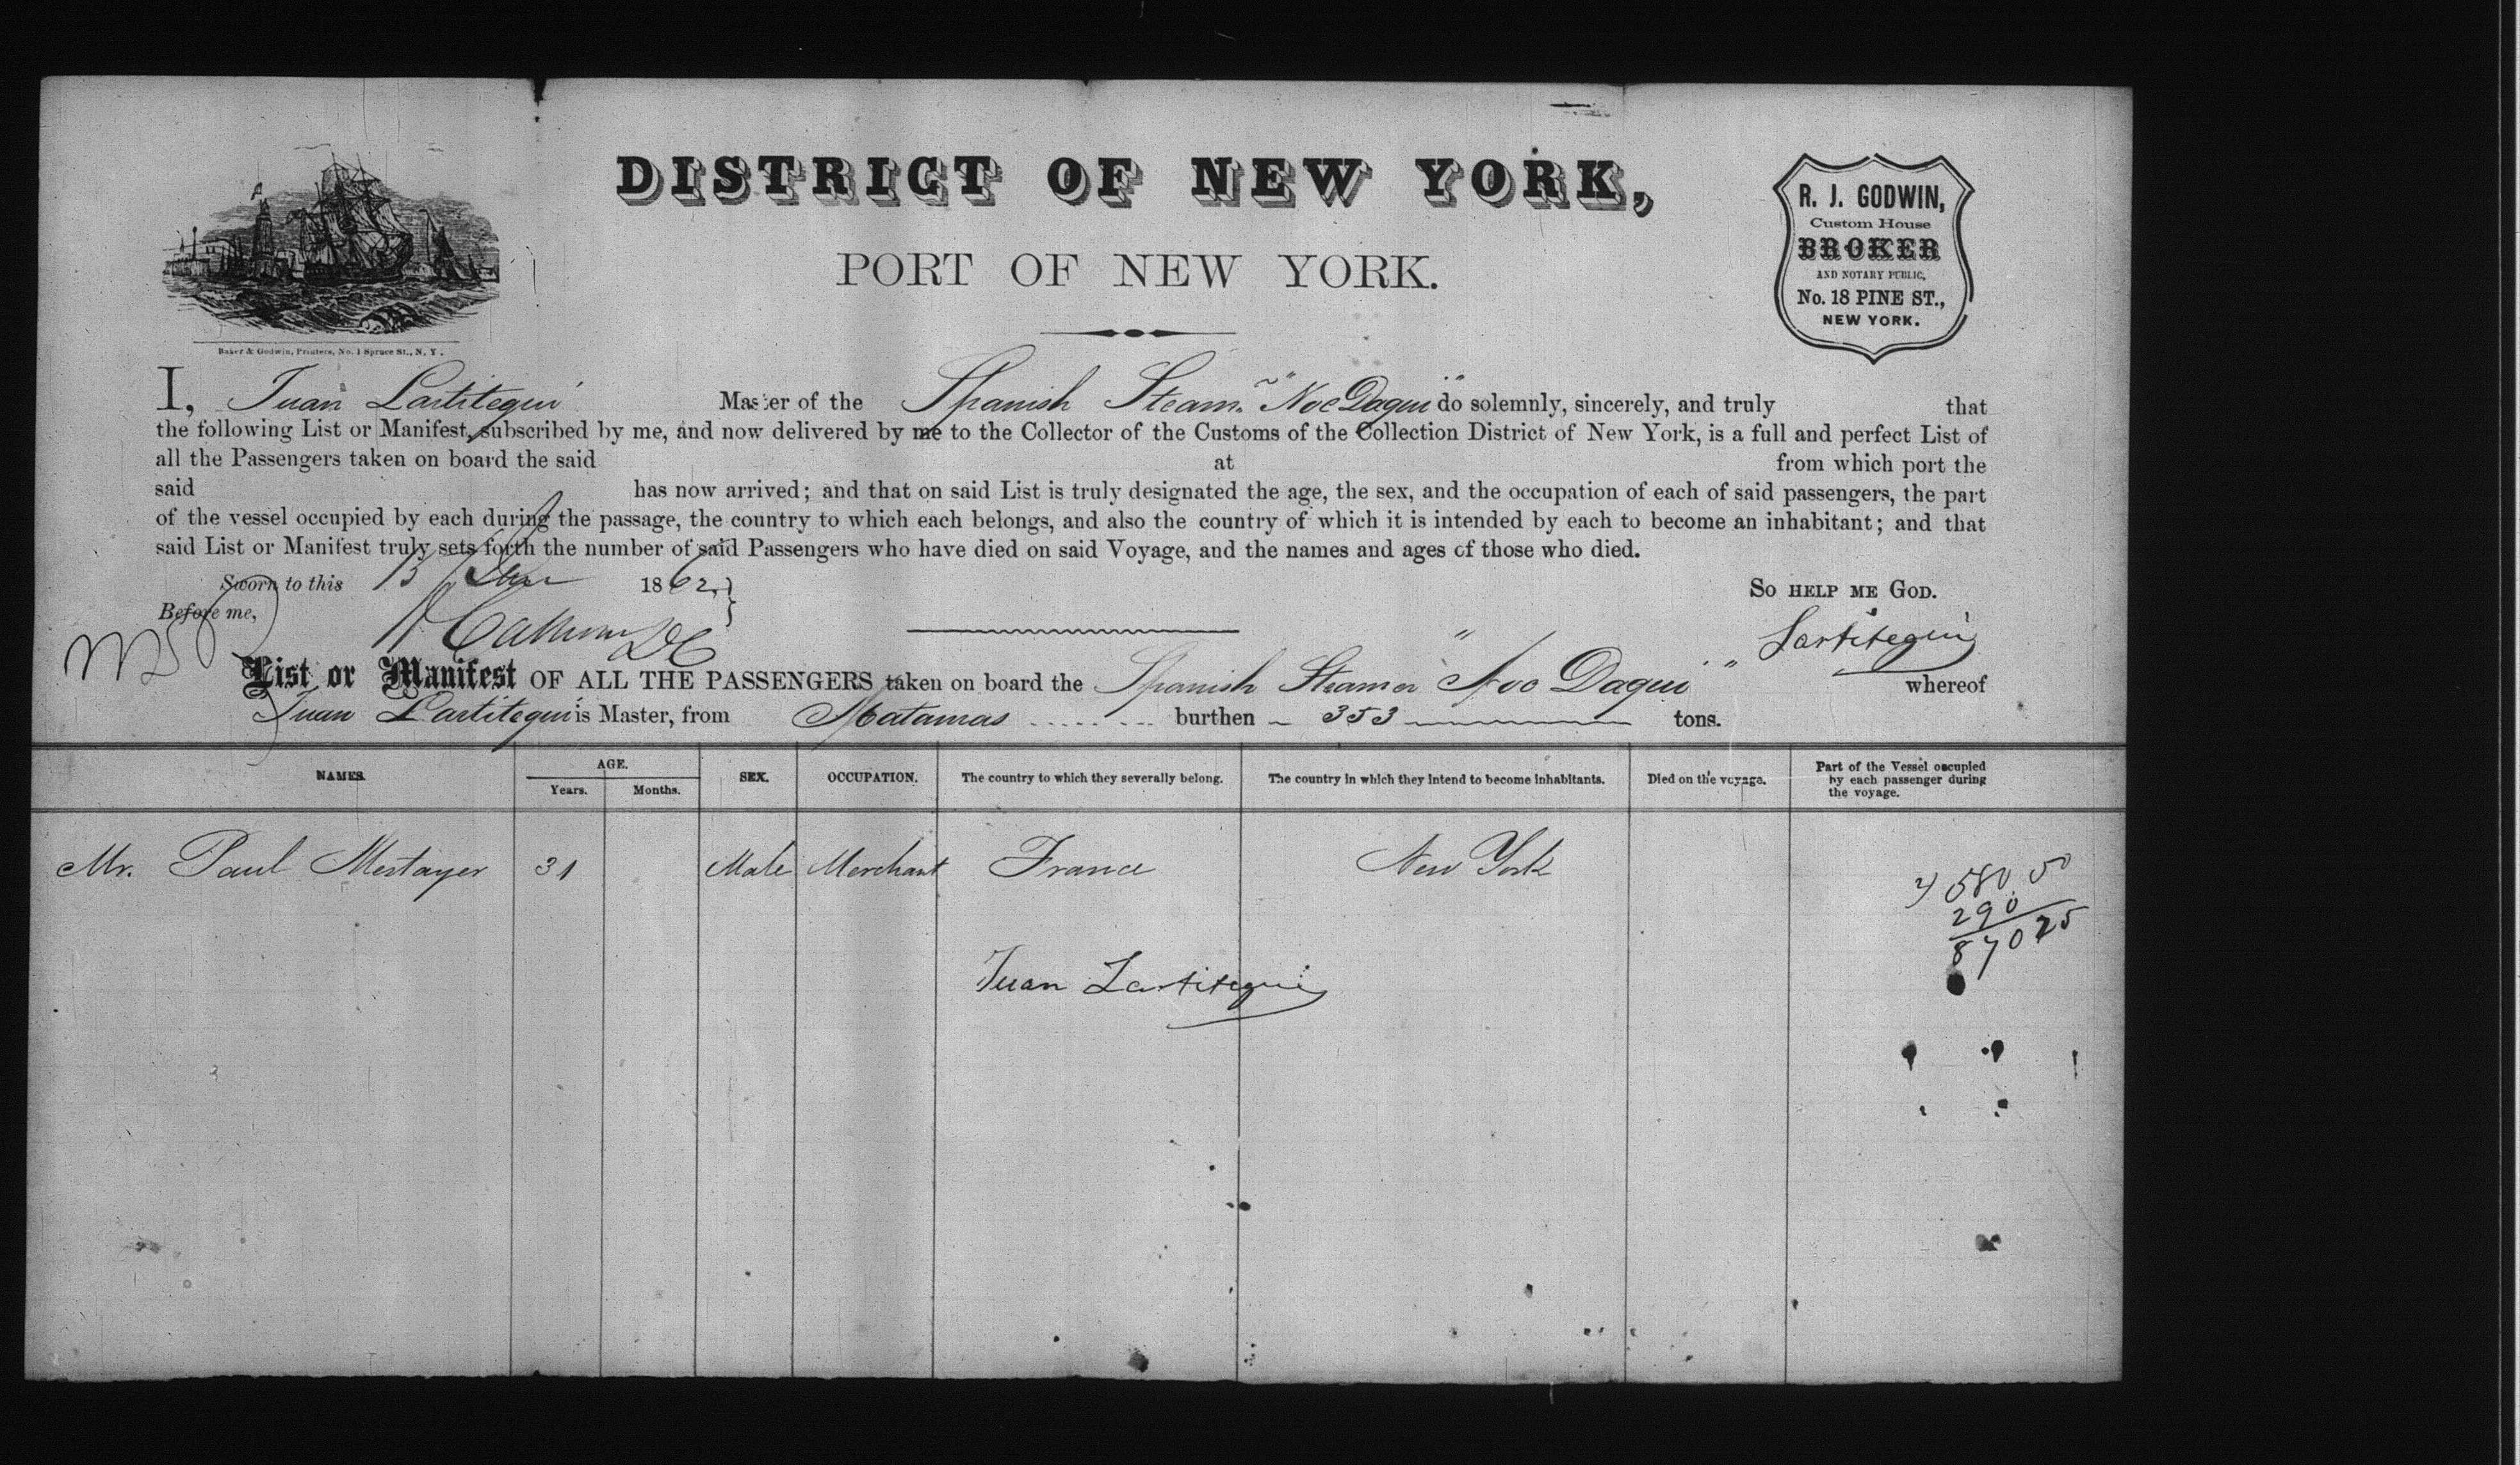 DISTRICT OF NEW YORK,
PORT OF NEW YORK.
R. J. GODWIN,
Custom House
BROKER
AND NOTARY PUBLIC,
No. 18 PINE ST.,
NEW YORK.
Baker & Godwin, Printers, No. 1 Spruce St., N. Y.
I, Juan Lartitegui Master of the Spanish Steamr "Noc Daqui" do solemnly, sincerely, and truly that
the following List or Manifest, subscribed by me, and now delivered by me to the Collector of the Customs of the Collection District of New York, is a full and perfect List of
all the Passengers taken on board the said at from which port the
said has now arrived; and that on said List is truly designated the age, the sex, and the occupation of each of said passengers, the part
of the vessel occupied by each during the passage, the country to which each belongs, and also the country of which it is intended by each to become an inhabitant; and that
said List or Manifest truly sets forth the number of said Passengers who have died on said Voyage, and the names and ages of those who died.
Sworn to this 13 1862, So HELP ME GOD.
Before me, Lartitegui
List or Manifest OF ALL THE PASSENGERS taken on board the Spanish Steamer "Noc Daqui" whereof
Juan Lartitegui is Master, from Matamas burthen 353 tons.
NAMES. AGE. SEX. OCCUPATION. The country to which they severally belong. The country in which they intend to become inhabitants. Died on the voyage. Part of the Vessel occupied by each passenger during the voyage.
Years. Months.
Mr. Paul Mestayer 31 Male Merchant France New York
2) 580.50
290
870 25
Juan Lartitegui